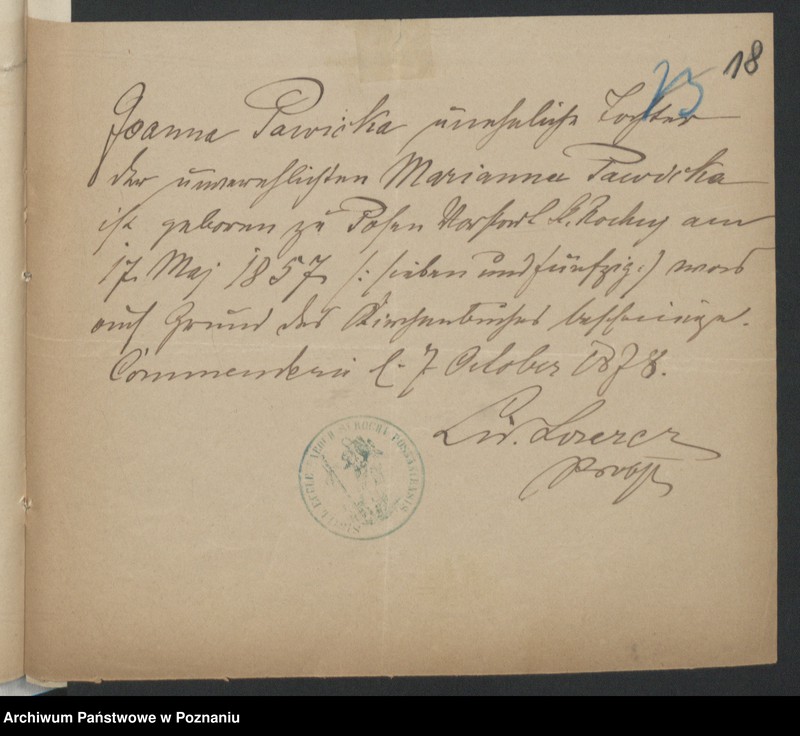 18
Joanna Pawicka uneheliche Tochter
der unverehlichten Marianna Pawicka
ist geboren zu Posen Vorstadt S. Rochy am
17. Maj 1857 (: sieben und fünfzig :) was
auf Grund des Kirchenbuches bescheinige.
Commenderie d. 7 October 1878.
Probst
SIGILL ECCLE ROCHI POSNANIENSIS
Archiwum Państwowe w Poznaniu